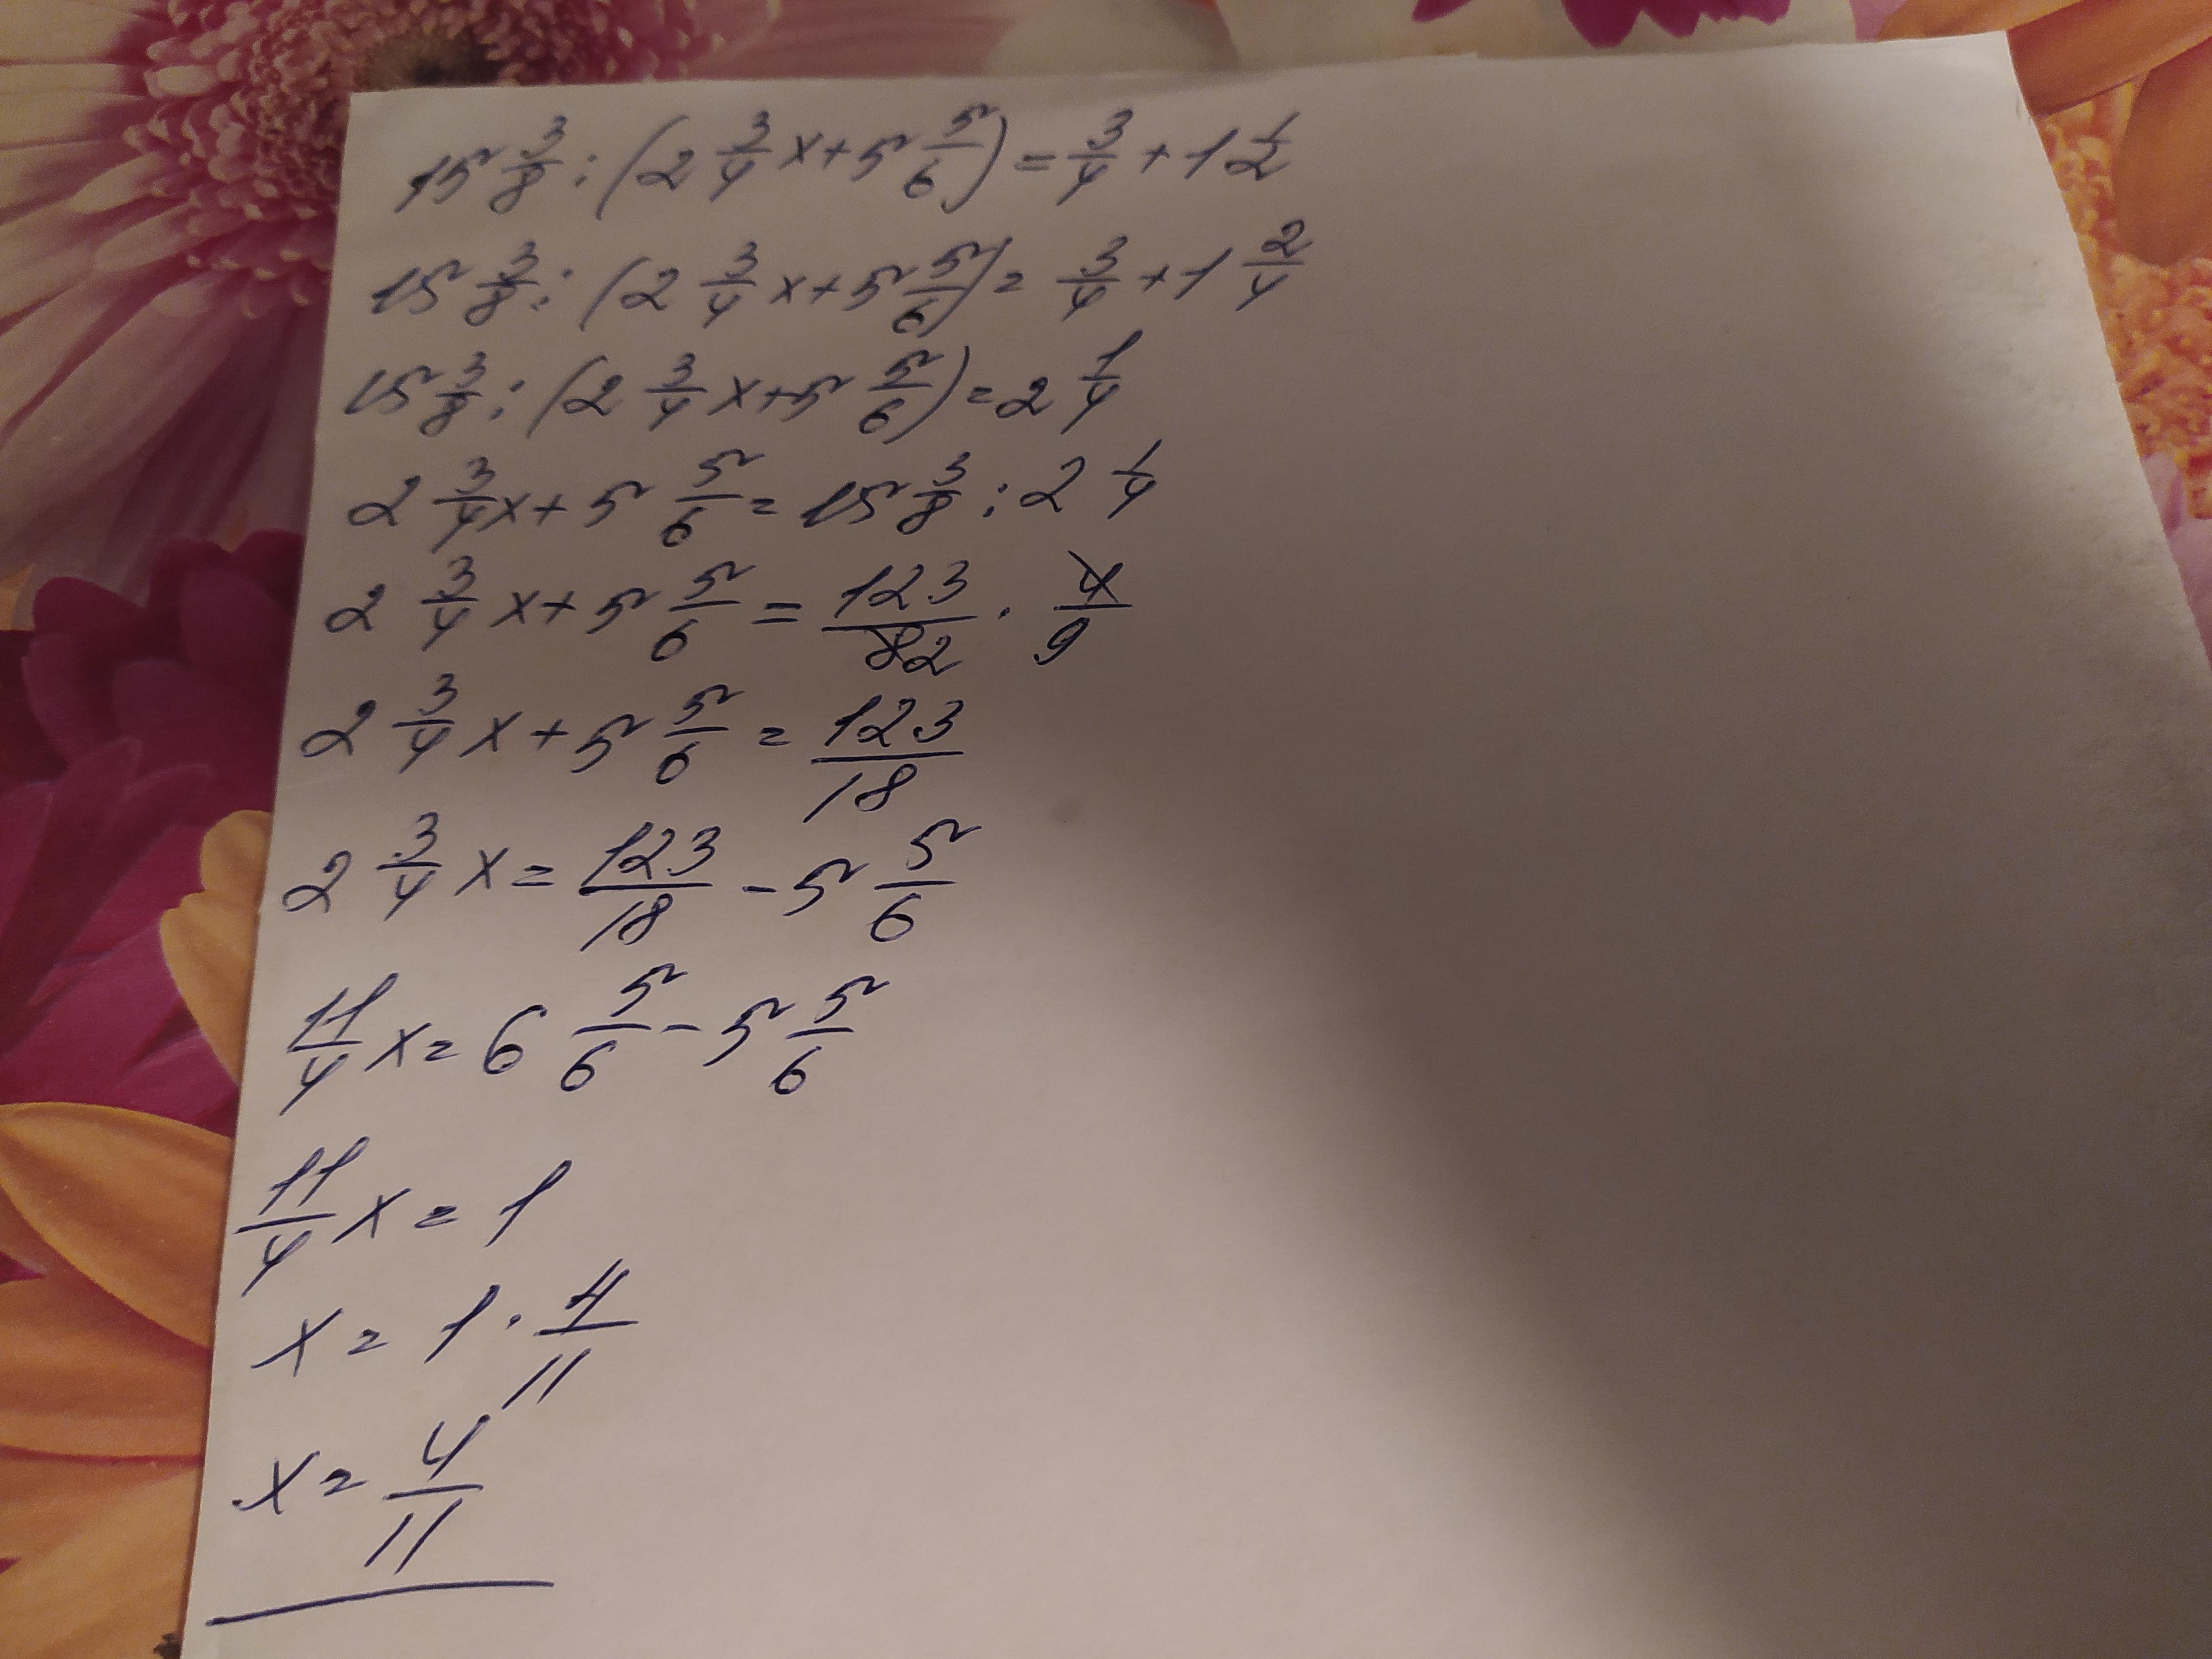 15 3/8 : (2 3/4 x + 5 5/6) = 3/4 + 1 1/2
15 3/8 : (2 3/4 x + 5 5/6) = 3/4 + 1 2/4
15 3/8 : (2 3/4 x + 5 5/6) = 2 1/4
2 3/4 x + 5 5/6 = 15 3/8 : 2 1/4
2 3/4 x + 5 5/6 = 123/82 · 4/9
2 3/4 x + 5 5/6 = 123/18
2 3/4 x = 123/18 - 5 5/6
11/4 x = 6 5/6 - 5 5/6
11/4 x = 1
x = 1 · 4/11
x = 4/11